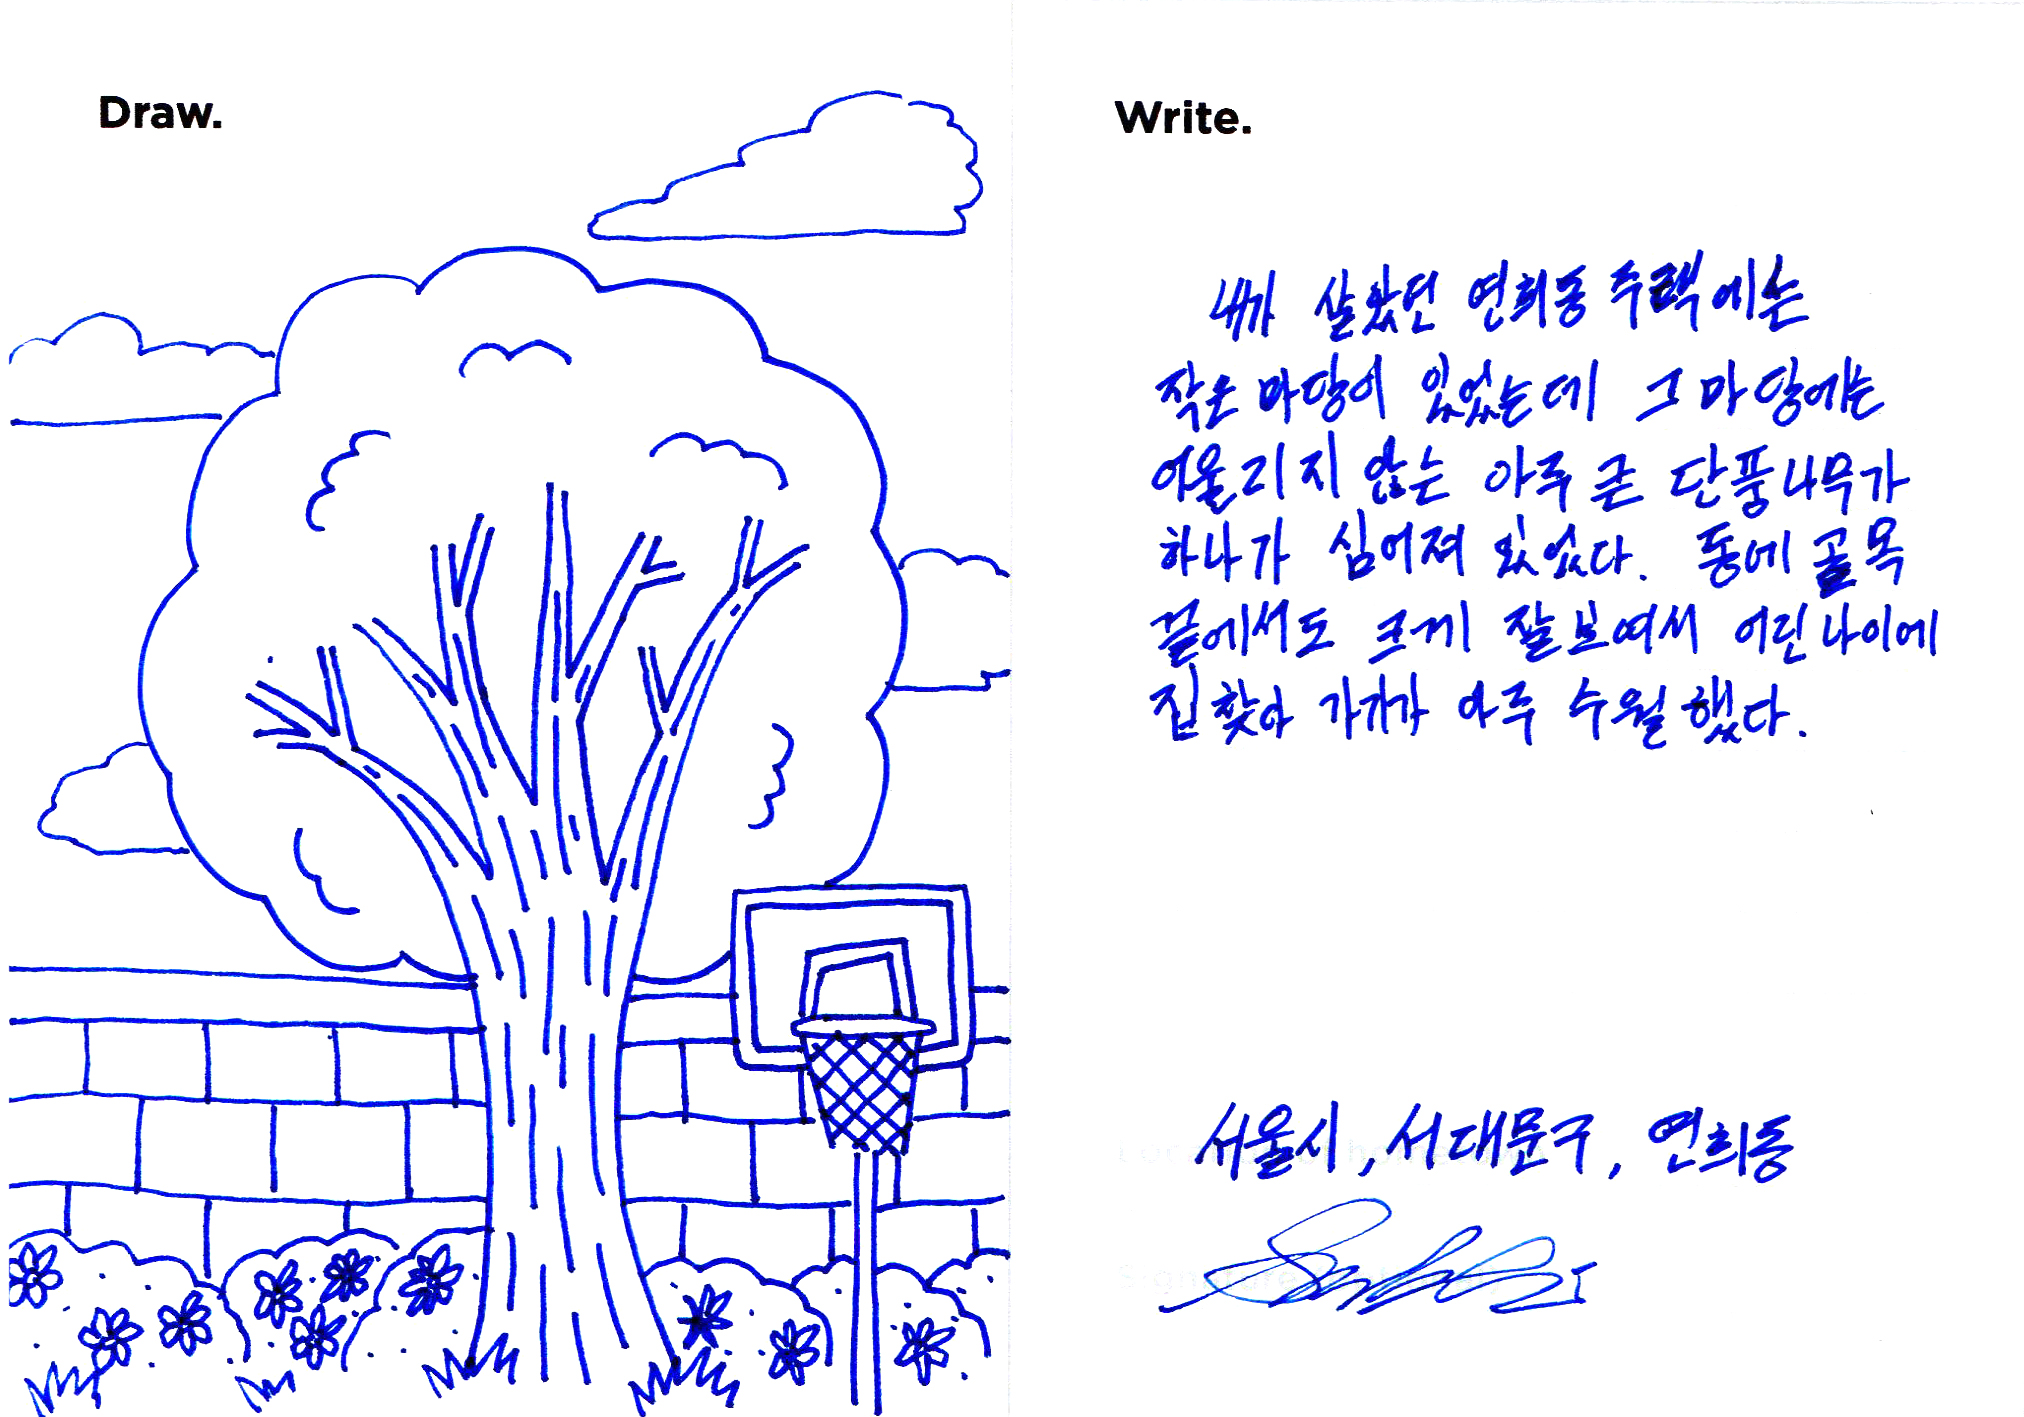 Draw.
Write.
내가 살았던 연희동 주택에는
작은 마당이 있었는데 그 마당에는
어울리지 않는 아주 큰 단풍나무가
하나가 심어져 있었다. 동네 골목
끝에서도 크게 잘 보여서 어린나이에
집 찾아 가기가 아주 수월했다.
서울시, 서대문구, 연희동